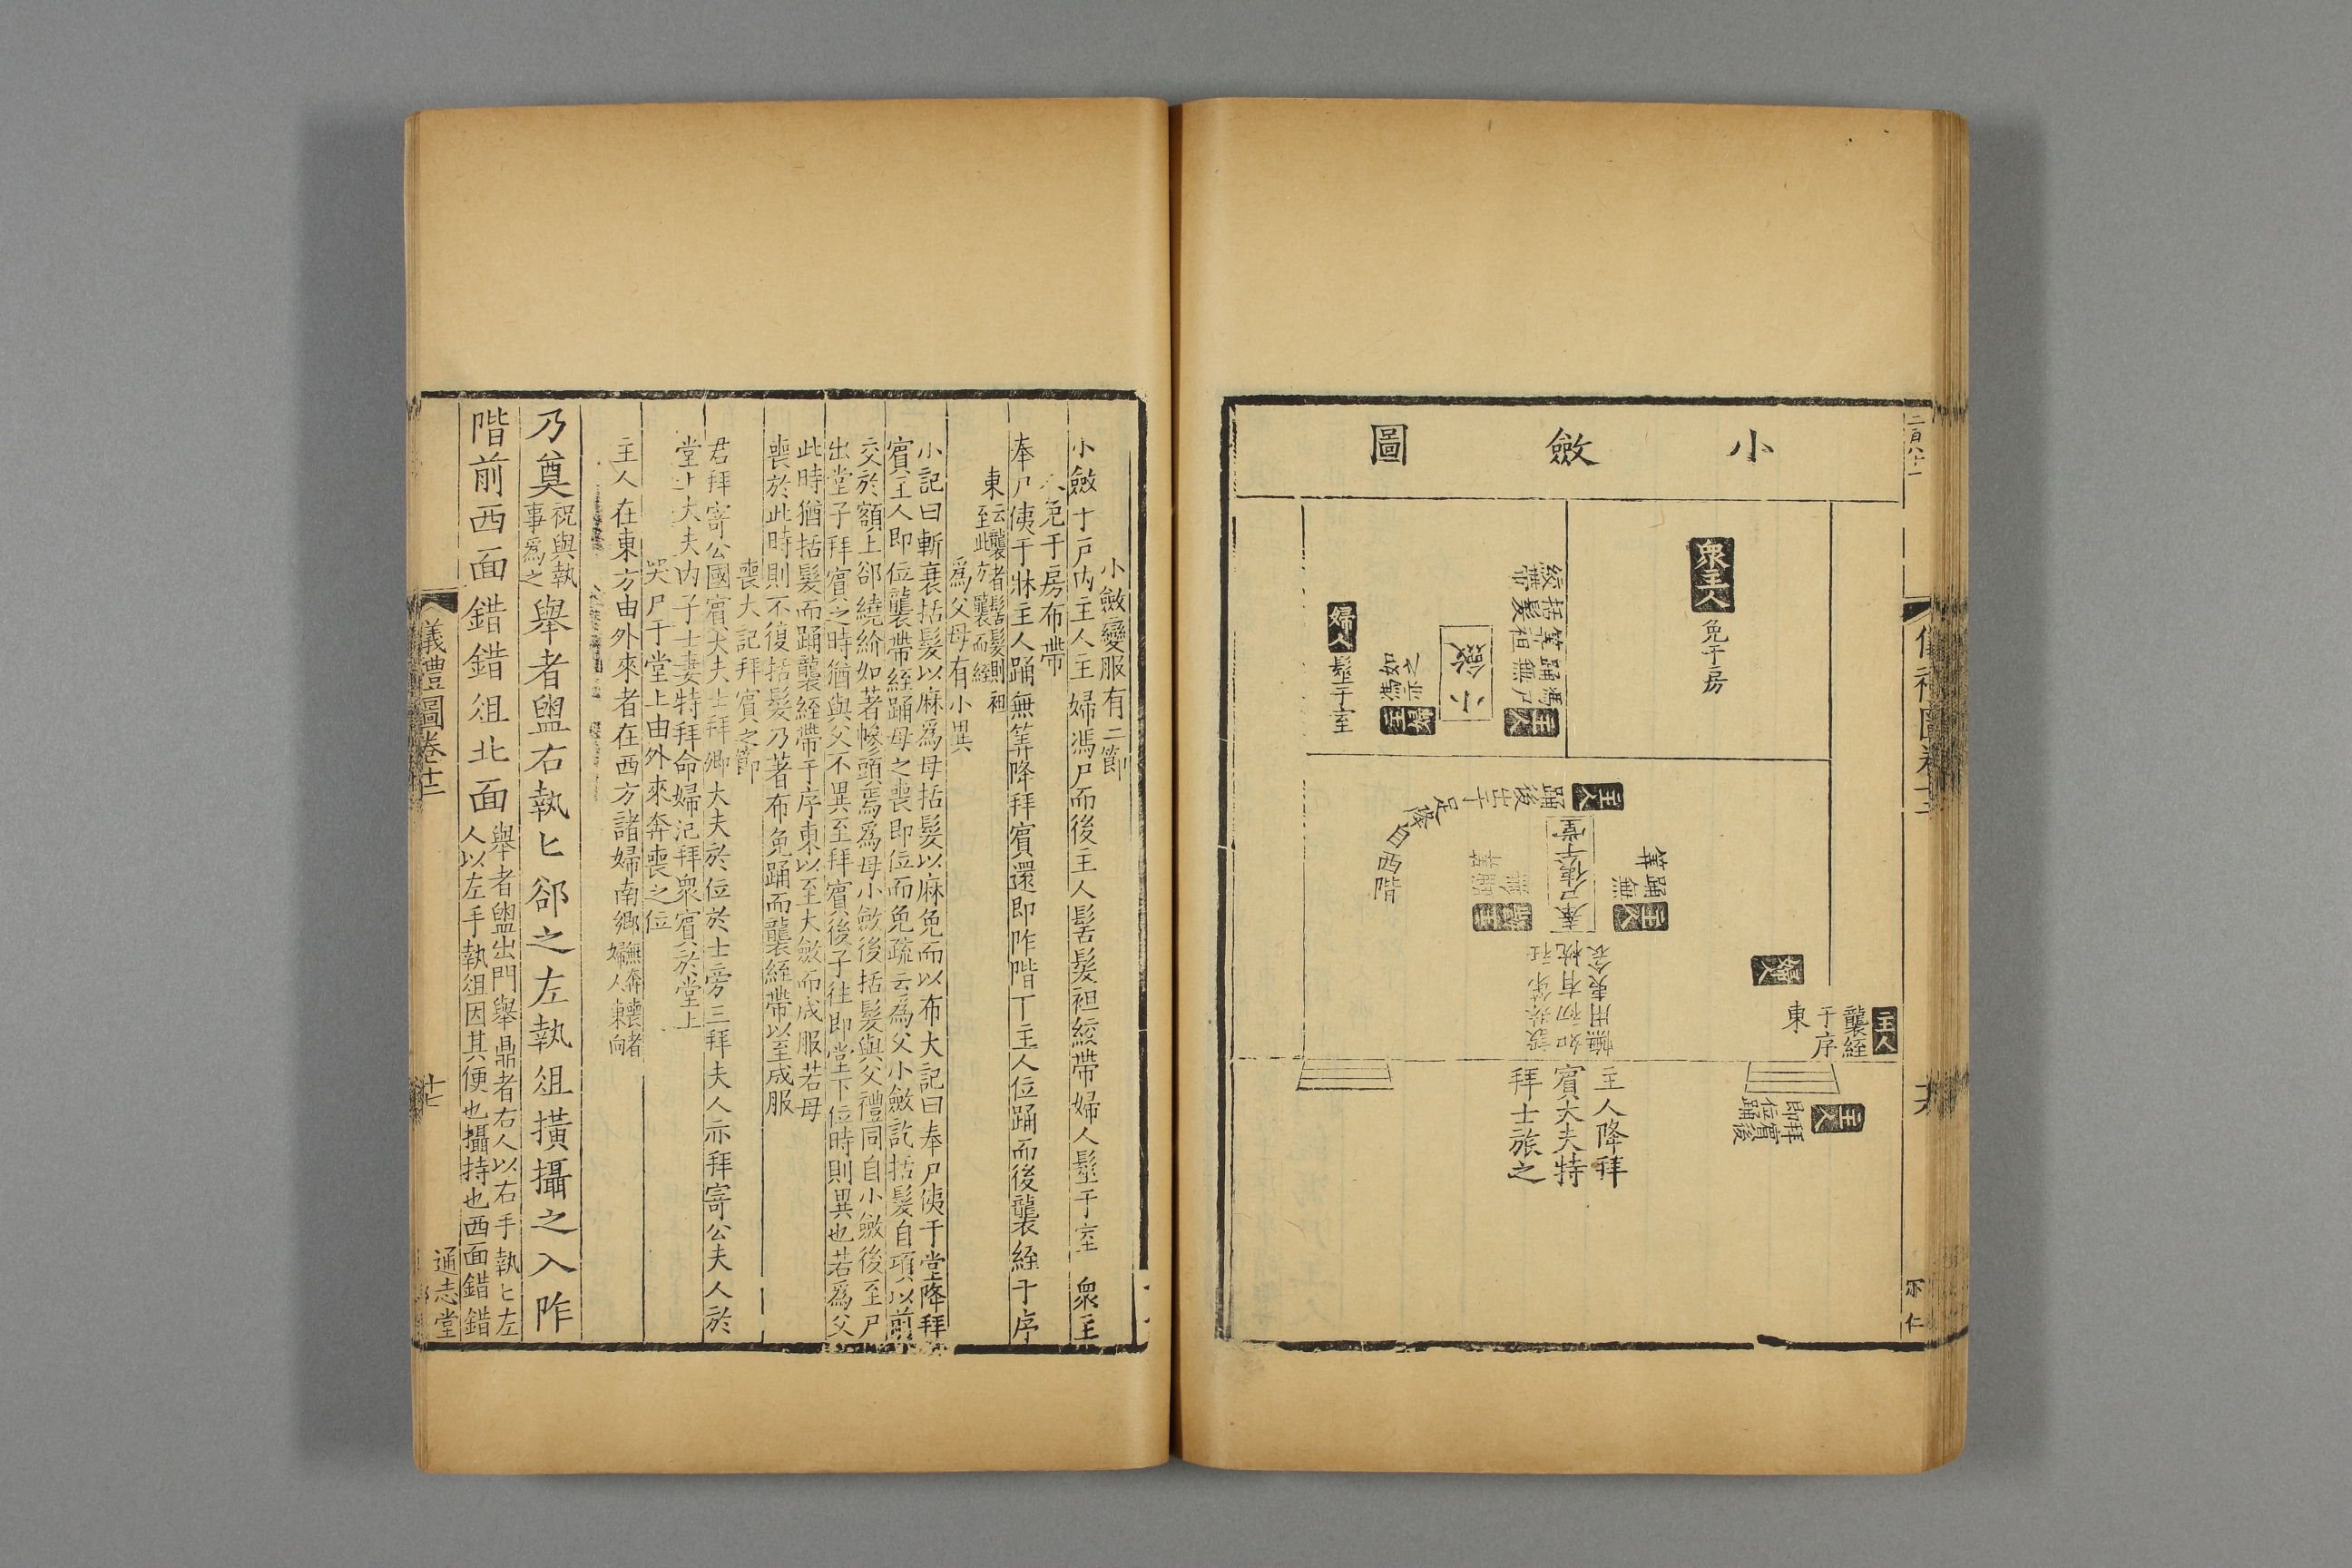 小斂圖
衆主人
免于房
主人
馮尸
踊無
筭
括髮袒
絞帶
小斂
主婦
亦如之
婦人
髽于室
主人
踊
後出于足
自西階
主人
踊無
筭
奉尸侇于堂
主婦
婦人
主人
襲絰
于序
東
設牀第
如初有枕
幠用夷衾
主人降拜
賓大夫特
拜士旅之
主人
拜賓後
即位踊
儀禮圖卷十一
小斂變服有二節
小斂于戶內主人主婦馮尸而後主人髺髮袒絞帶婦人髽于室 衆主
人免于房布帶
奉尸侇于牀主人踊無筭降拜賓還即阼階下主人位踊而後襲絰于序
東
爲父母有小異
小記曰斬衰括髮以麻爲母括髮以麻免而以布大記曰奉尸侇于堂降拜
賓主人即位襲帶絰踊母之喪即位而免疏云爲父小斂訖括髮自項以前
交於額上郤繞紒如著幓頭焉爲母小斂後括髮與父禮同自小斂後至尸
出堂子拜賓之時猶與父不異至拜賓後子往即堂下位時則異也若爲父
此時猶括髮而踊襲絰帶于序東以至大斂而成服若母
喪於此時則不復括髮乃著布免踊而襲絰帶以至成服
喪大記拜賓之節
君拜寄公國賓大夫士拜卿大夫於位於士旁三拜夫人亦拜寄公夫人於
堂上大夫內子士妻特拜命婦汜拜衆賓於堂上
哭尸于堂上由外來奔喪之位
主人在東方由外來者在西方諸婦南鄉 無奔喪者婦人東向
乃奠 祝與執事爲之 舉者盥右執匕郤之左執俎橫攝之入阼
階前西面錯錯俎北面 舉者盥出門舉鼎者右人以右手執匕左人以左手執俎因其便也攝持也西面錯錯
儀禮圖卷十一
十七
通志堂